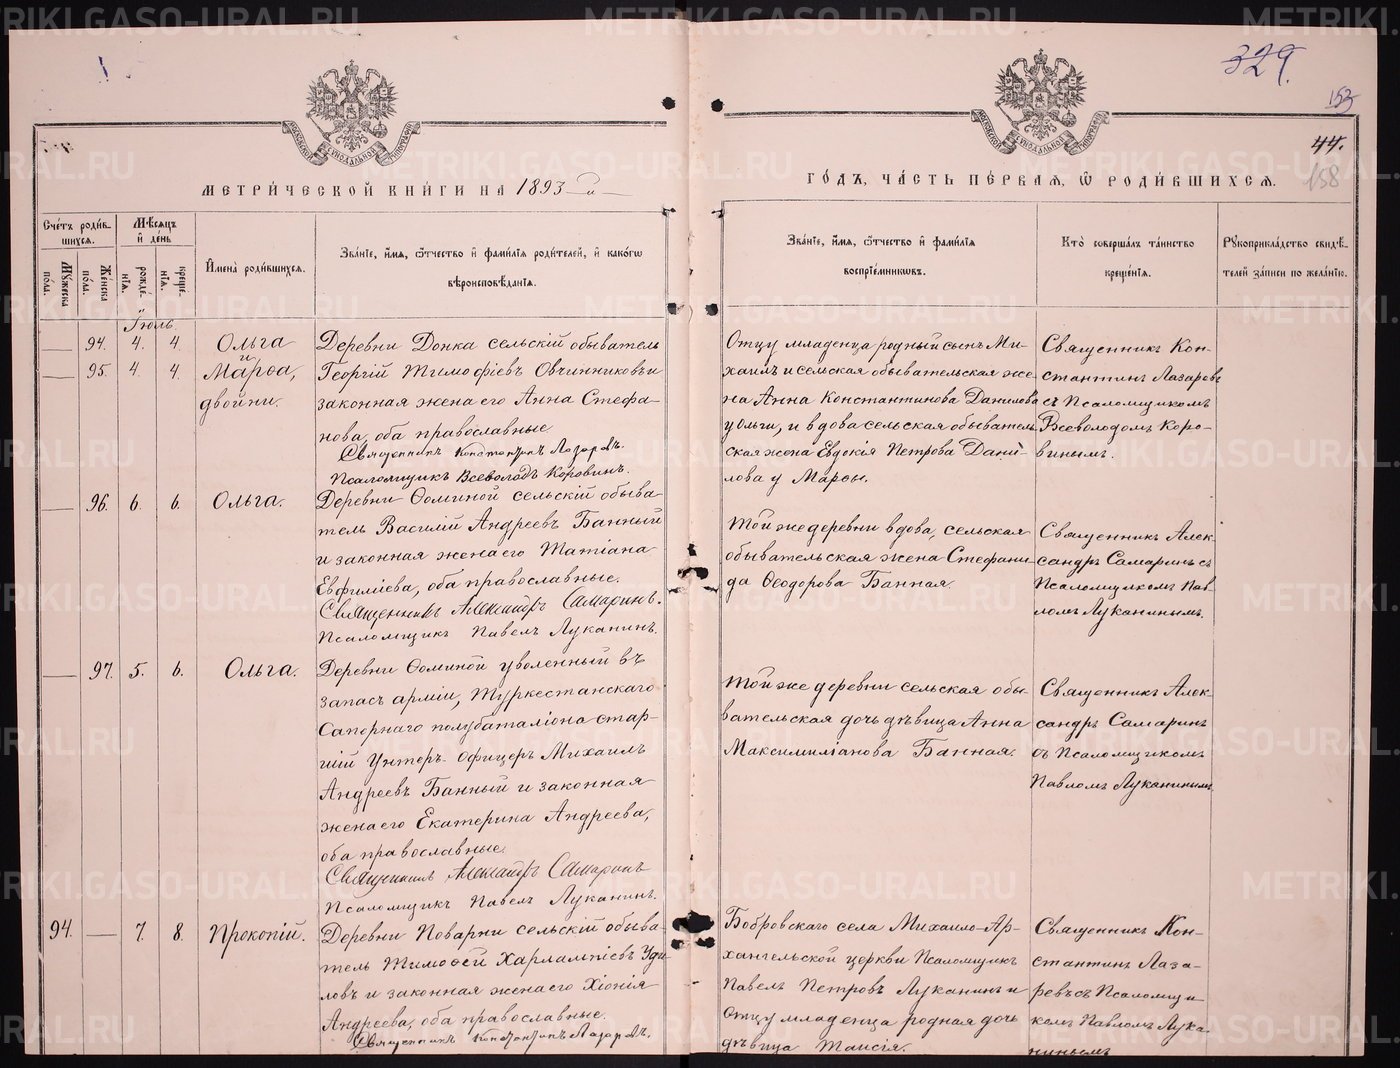 329.
153
44.
158
МЕТРИ́ЧЕСКОЙ КНИ́ГИ НА 1893
ГО́ДЪ, ЧА́СТЬ ПЕ́РВАЯ, Ѿ РОДИ́ВШИХСЯ.
Сче́тъ роди́вшихся.
Мѣ́сяцъ и́ де́нь
Му́жеска по́ла.
Же́нска по́ла.
рожде́нія.
креще́нія.
И́мена̀ роди́вшихся.
Зва́ніе, и́мя, ѿтчество и́ фами́лія роди́телей, и́ како́гѡ
вѣроисповѣ́данія.
Зва́ніе, и́мя, ѿтчество и́ фами́лія
воспріе́мниковъ.
Кто̀ соверша́лъ та́инство
креще́нія.
Рꙋкоприкла́дство свидѣ́-
телей за́писи по жела́нію.
Іюль.
— 94. 4. 4. Ольга
и
— 95. 4. 4. Марѳа,
двойни.
Деревни Донка сельскій обыватель
Георгій Тимофѣевъ Овчинниковъ и
законная жена его Анна Стефа-
нова, оба православные
Священникъ Константинъ Лазаревъ.
Псаломщикъ Всеволодъ Коровинъ.
Отцу младенца родный сынъ Ми-
хаилъ и сельская обывательская же-
на Анна Константинова Данилова
у Ольги, и вдова сельская обыватель-
ская жена Евдокія Петрова Дани-
лова у Марѳы.
Священникъ Кон-
стантинъ Лазаревъ
съ Псаломщикомъ
Всеволодомъ Коро-
винымъ.
— 96. 6. 6. Ольга.
Деревни Ѳоминой сельскій обыва-
тель Василій Андреевъ Банный
и законная жена его Татіана
Евфиміева, оба православные.
Священникъ Александръ Самаринъ.
Псаломщикъ Павелъ Луканинъ.
Той же деревни вдова, сельская
обывательская жена Стефани
да Ѳеодорова Банная.
Священникъ Алек-
сандръ Самаринъ съ
Псаломщикомъ Пав-
ломъ Луканинымъ.
— 97. 5. 6. Ольга.
Деревни Ѳоминой уволенный въ
запасъ арміи, Туркестанскаго
Сапернаго полубаталіона стар-
шій Унтеръ-офицеръ Михаилъ
Андреевъ Банный и законная
жена его Екатерина Андреева,
оба православные.
Священникъ Александръ Самаринъ
Псаломщикъ Павелъ Луканинъ.
Той же деревни сельская обы-
вательская дочь дѣвица Анна
Максимиліанова Банная.
Священникъ Алек-
сандръ Самаринъ
съ Псаломщикомъ
Павломъ Луканинымъ.
94. — 7. 8. Прокопій.
Деревни Поварни сельскій обыва-
тель Тимоѳей Харлампіевъ Уди-
ловъ и законная жена его Хіонія
Андреева, оба православные.
Священникъ Константинъ Лазаревъ.
Бобровскаго села Михаило-Ар-
хангельской церкви Псаломщикъ
Павелъ Петровъ Луканинъ и
Отцу младенца родная дочь
дѣвица Таисія.
Священникъ Кон-
стантинъ Лаза-
ревъ съ Псаломщи-
комъ Павломъ Лука-
нинымъ